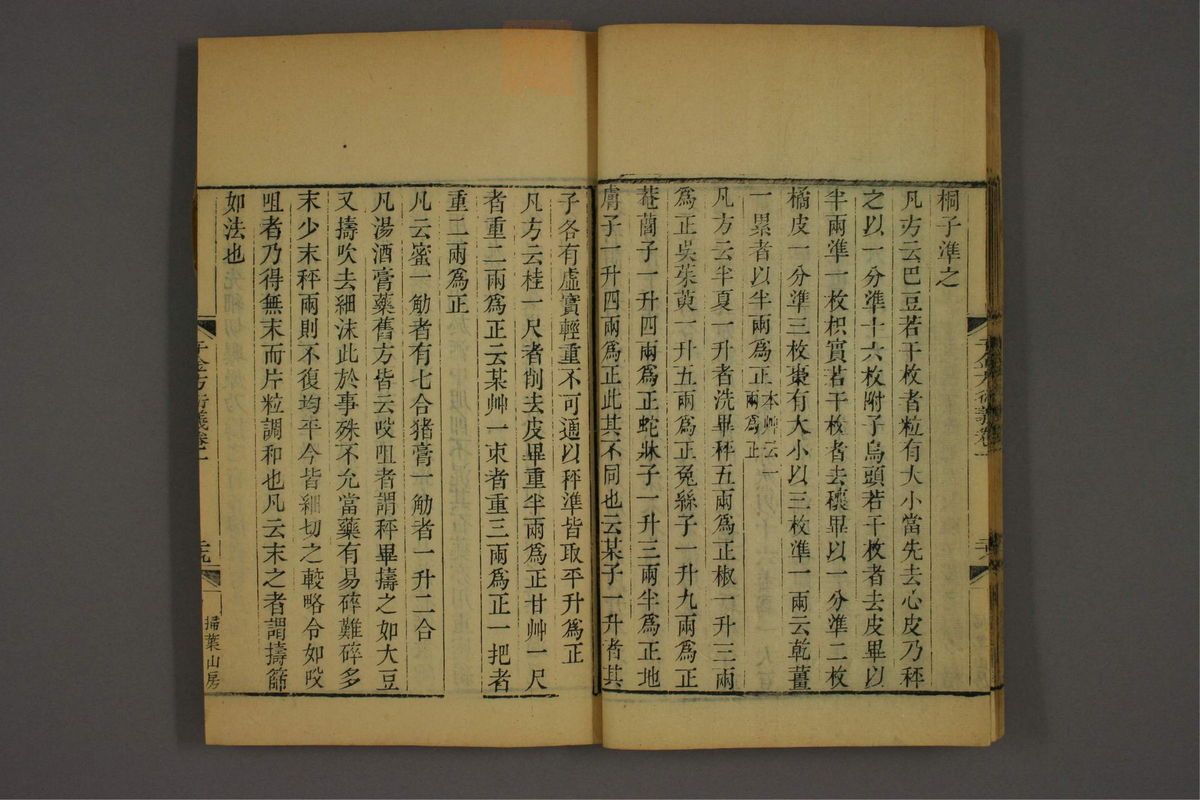 桐子準之
凡方云巴豆若干枚者粒有大小當先去心皮乃秤
之以一分準十六枚附子烏頭若干枚者去皮畢以
半兩準一枚枳實若干枚者去穰畢以一分準二枚
橘皮一分準三枚棗有大小以三枚準一兩云乾薑
一累者以半兩爲正本艸云一兩爲正
凡方云半夏一升者洗畢秤五兩爲正椒一升三兩
爲正吳茱萸一升五兩爲正兔絲子一升九兩爲正
菴䕡子一升四兩爲正蛇牀子一升三兩半爲正地
膚子一升四兩爲正此其不同也云某子一升者其
子各有虛實輕重不可通以秤準皆取平升爲正
凡方云桂一尺者削去皮畢重半兩爲正甘艸一尺
者重二兩爲正云某艸一束者重三兩爲正一把者
重二兩爲正
凡云蜜一觔者有七合猪膏一觔者一升二合
凡湯酒膏藥舊方皆云㕮咀者謂秤畢擣之如大豆
又擣吹去細沫此於事殊不允當藥有易碎難碎多
末少末秤兩則不復均平今皆細切之較略令如㕮
咀者乃得無末而片粒調和也凡云末之者謂擣篩
如法也
千金方衍義卷一
掃葉山房